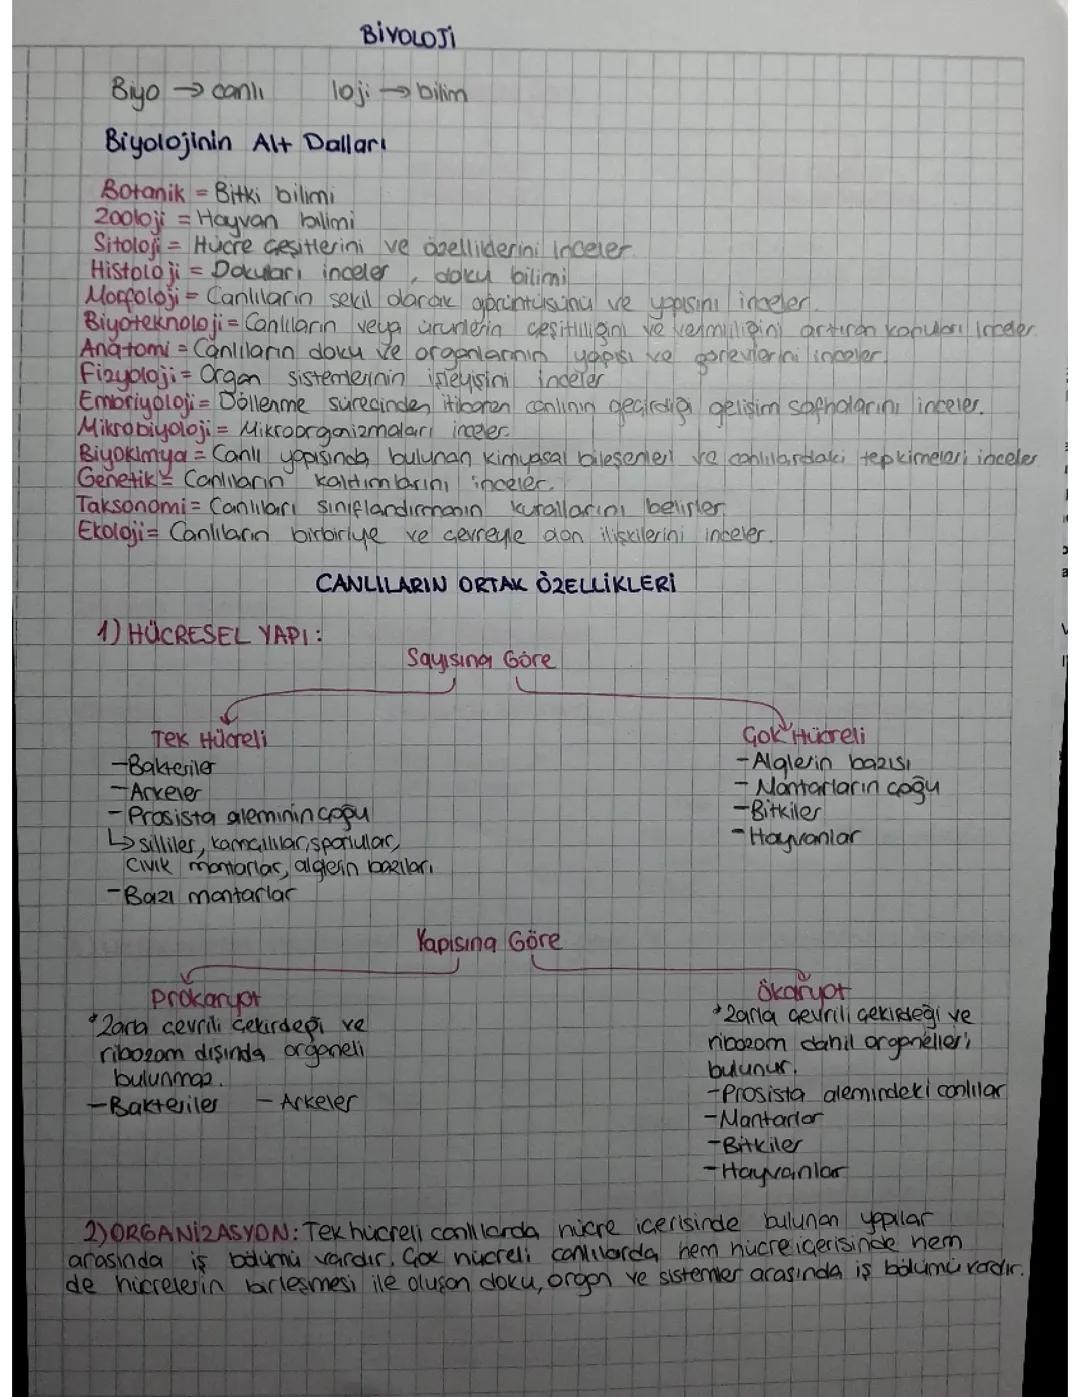 BİYOLOJİ
Biyo → canlı loji → bilim
Biyolojinin Alt Dalları
Botanik = Bitki bilimi
Zooloji = Hayvan bilimi
Sitoloji = Hücre çeşitlerini ve özelliklerini inceler
Histoloji = Dokuları inceler, doku bilimi
Morfoloji = Canlıların şekil olarak görüntüsünü ve yapısını inceler.
Biyoteknoloji = Canlıların veya ürünlerin çeşitliliğini ve verimliliğini artıran konuları inceler.
Anatomi = Canlıların doku ve organlarının yapısı ve görevlerini inceler.
Fizyoloji = Organ sistemlerinin işleyişini inceler
Embriyoloji = Döllenme sürecinden itibaren canlının geçirdiği gelişim safhalarını inceler.
Mikrobiyoloji = Mikroorganizmaları inceler.
Biyokimya = Canlı yapısında bulunan kimyasal bileşenleri ve canlılardaki tepkimeleri inceler
Genetik = Canlıların kalıtımlarını inceler.
Taksonomi = Canlıları sınıflandırmanın kurallarını belirler.
Ekoloji = Canlıların birbiriye ve çevreyle olan ilişkilerini inceler.
CANLILARIN ORTAK ÖZELLİKLERİ
1) HÜCRESEL YAPI:
Sayısına Göre
Tek Hücreli
-Bakteriler
-Arkeler
-Prosista aleminin çoğu
↳ silliler, kamçılılar, sporlular,
cıvık mantarlar, alglerin bazıları
-Bazı mantarlar
Çok Hücreli
-Alglerin bazısı
-Mantarların çoğu
-Bitkiler
-Hayvanlar
Yapısına Göre
Prokaryot
*Zarla çevrili çekirdeği ve
ribozom dışında organeli
bulunmaz.
-Bakteriler -Arkeler
Ökaryot
*Zarla çevrili çekirdeği ve
ribozom dahil organelleri
bulunur.
-Prosista alemindeki canlılar
-Mantarlar
-Bitkiler
-Hayvanlar
2) ORGANİZASYON: Tek hücreli canlılarda hücre içerisinde bulunan yapılar
arasında iş bölümü vardır. Çok hücreli canlılarda hem hücre içerisinde hem
de hücrelerin birleşmesi ile oluşan doku, organ ve sistemler arasında iş bölümü vardır.